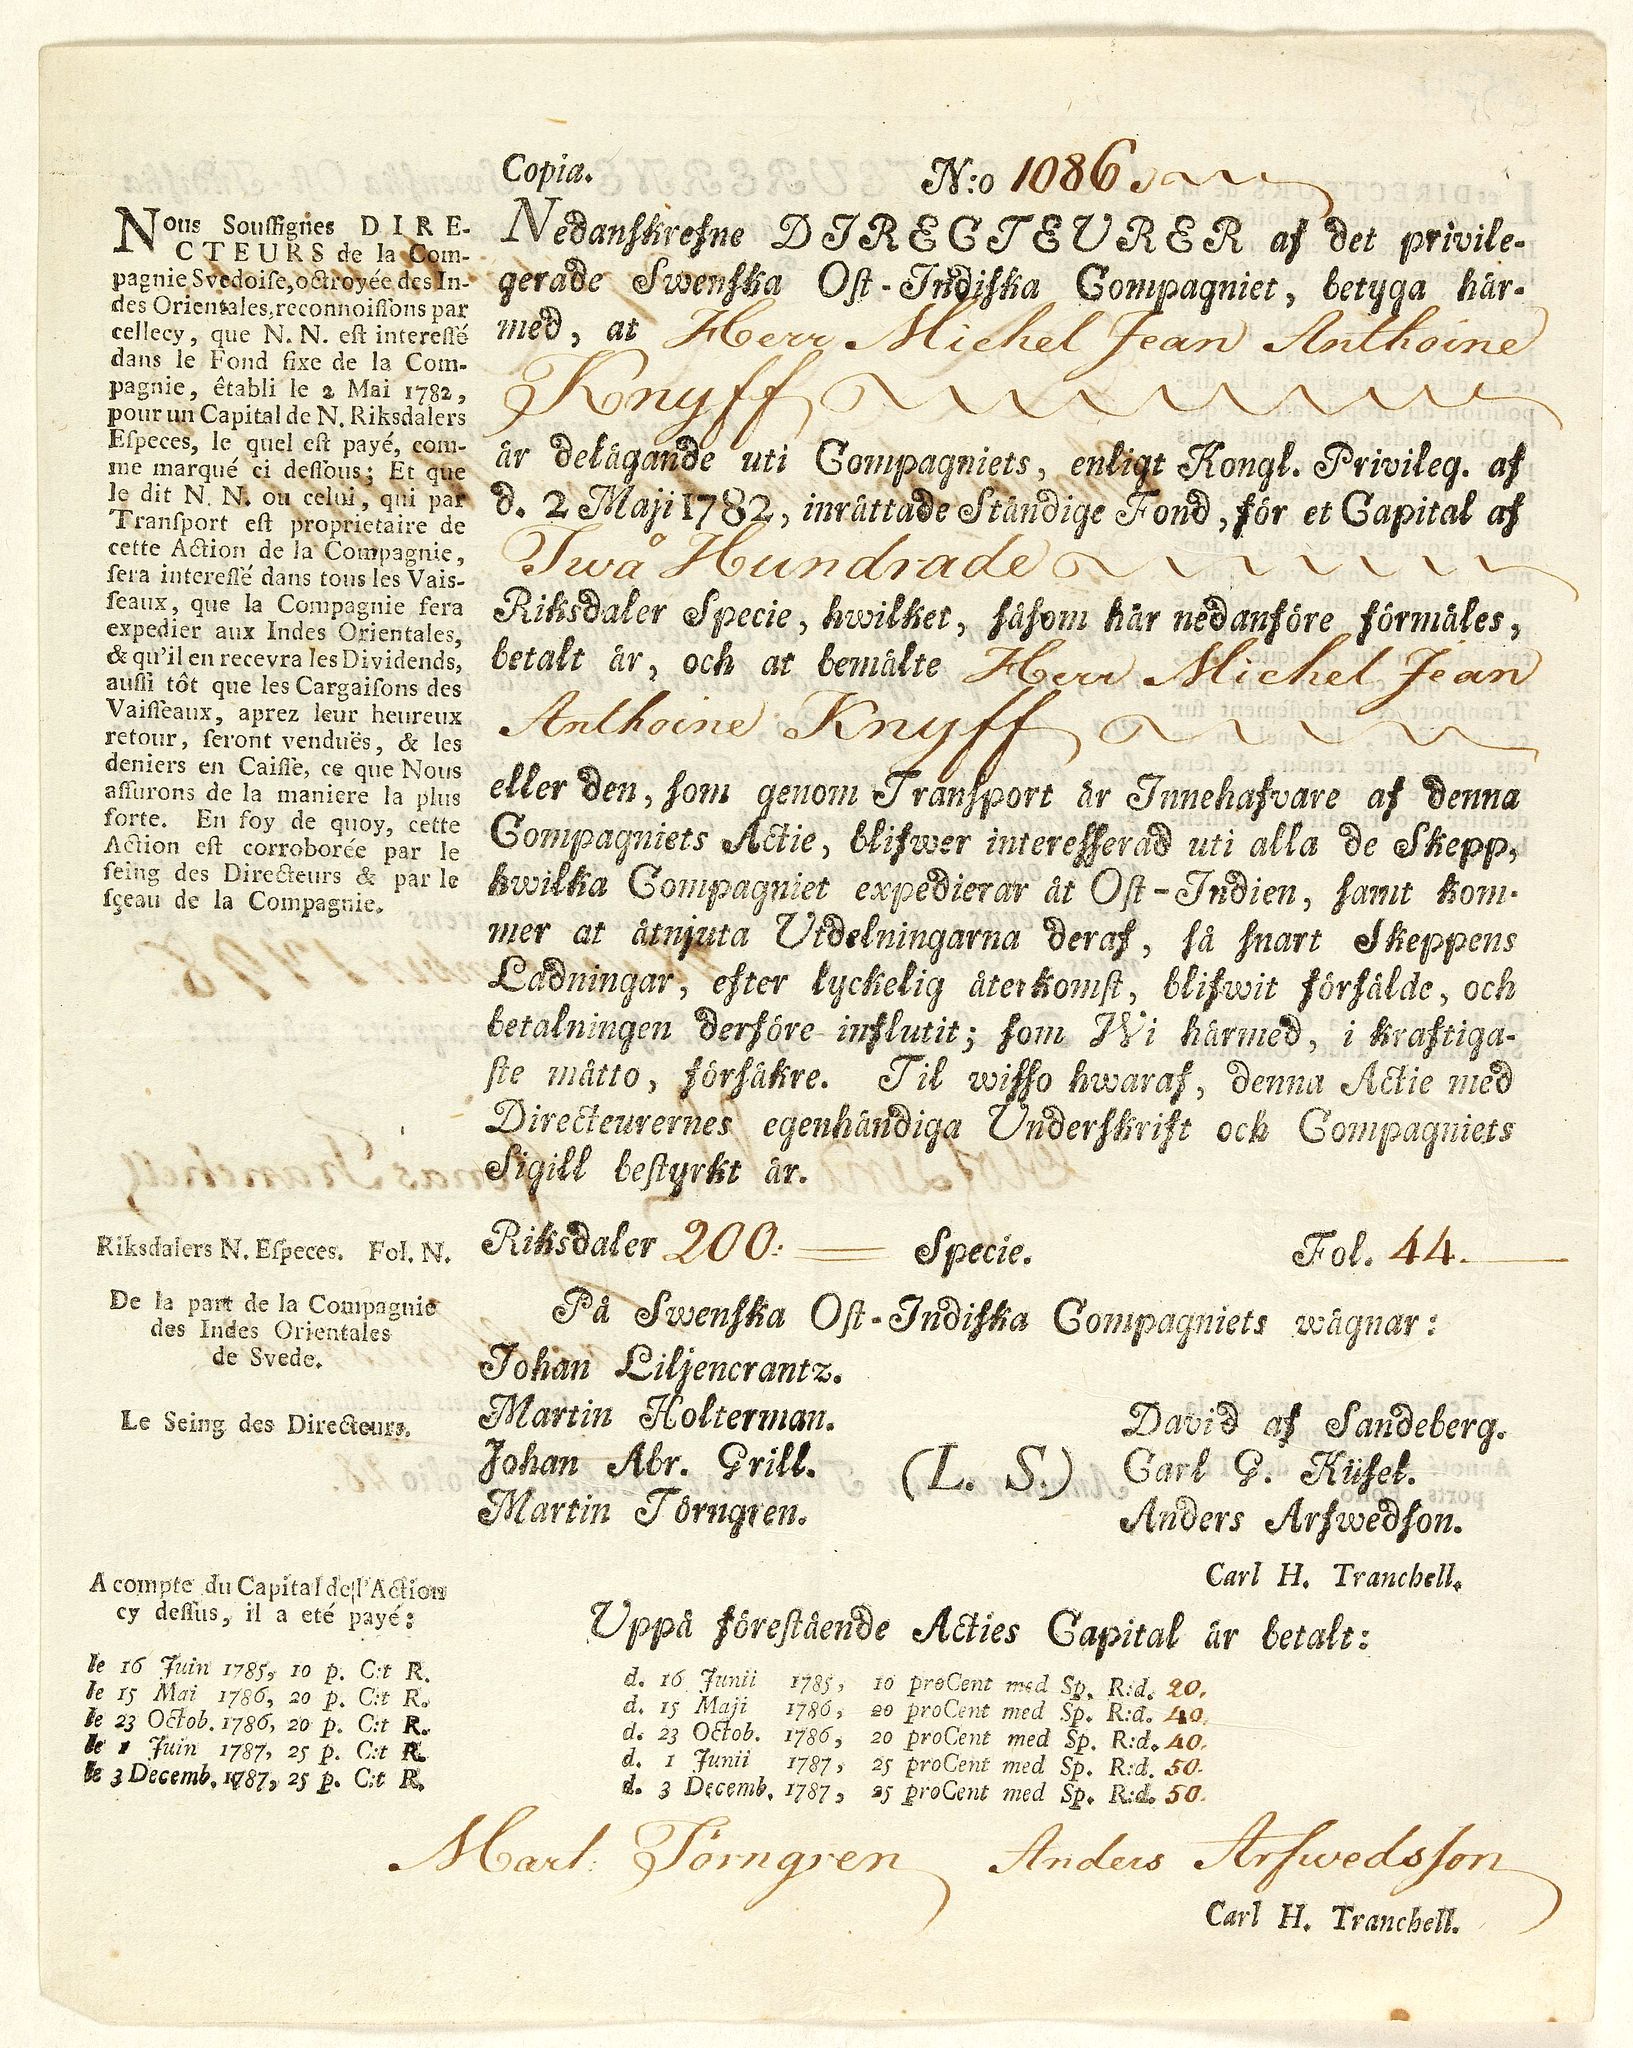 Copia. N:o 1086.
Nous Souſſignès DIRE-
CTEURS de la Com-
pagnie Svedoiſe, octroyée des In-
des Orientales, reconnoiſſons par
cellecy, que N. N. eſt intereſſé
dans le Fond fixe de la Com-
pagnie, êtabli le 2 Mai 1782,
pour un Capital de N. Riksdalers
Eſpeces, le quel eſt payé, com-
me marqué ci deſſous; Et que
le dit N. N. ou celui, qui par
Tranſport eſt proprietaire de
cette Action de la Compagnie,
ſera intereſſé dans tous les Vais-
ſeaux, que la Compagnie fera
expedier aux Indes Orientales,
& qu'il en recevra les Dividends,
auſſi tôt que les Cargaiſons des
Vaiſſeaux, aprez leur heureux
retour, ſeront venduës, & les
deniers en Caiſſe, ce que Nous
aſſurons de la maniere la plus
forte. En foy de quoy, cette
Action eſt corroborée par le
ſeing des Directeurs & par le
ſçeau de la Compagnie.
Nedanſkrefne DIRECTEURER af det privile-
gerade Swenſka Oſt-Indiſka Compagniet, betyga här-
med, at Herr Michel Jean Anthoine
Knyff
är delägande uti Compagniets, enligt Kongl. Privileg. af
d. 2 Maji 1782, inrättade Ständige Fond, för et Capital af
Twå Hundrade
Riksdaler Specie, hwilket, ſåſom här nedanföre förmäles,
betalt är, och at bemälte Herr Michel Jean
Anthoine Knyff
eller den, ſom genom Tranſport är Innehafvare af denna
Compagniets Actie, blifwer intereſſerad uti alla de Skepp,
hwilka Compagniet expedierar åt Oſt-Indien, ſamt kom-
mer at åtnjuta Utdelningarna deraf, ſå ſnart Skeppens
Ladningar, efter lyckelig återkomſt, blifwit förſålde, och
betalningen derföre influtit; ſom Wi härmed, i kraftiga-
ſte måtto, förſäkre. Til wiſſo hwaraf, denna Actie med
Directeurernes egenhändiga Underſkrift och Compagniets
Sigill beſtyrkt är.
Riksdalers N. Eſpeces. Fol. N. Riksdaler 200: Specie. Fol. 44.
De la part de la Compagnie
des Indes Orientales
de Svede.
På Swenſka Oſt-Indiſka Compagniets wägnar:
Johan Liljencrantz.
Le Seing des Directeurs. Martin Holterman. David af Sandeberg.
Johan Abr. Grill. (L. S.) Carl G. Küſel.
Martin Törngren. Anders Arfwedſon.
Carl H. Tranchell.
A compte du Capital de l'Action
cy deſſus, il a eté payé:
Uppå föreſtående Acties Capital är betalt:
le 16 Juin 1785, 10 p. C:t R. d. 16 Junii 1785, 10 proCent med Sp. R:d. 20.
le 15 Mai 1786, 20 p. C:t R. d. 15 Maji 1786, 20 proCent med Sp. R:d. 40.
le 23 Octob. 1786, 20 p. C:t R. d. 23 Octob. 1786, 20 proCent med Sp. R:d. 40.
le 1 Juin 1787, 25 p. C:t R. d. 1 Junii 1787, 25 proCent med Sp. R:d. 50.
le 3 Decemb. 1787, 25 p. C:t R. d. 3 Decemb. 1787, 25 proCent med Sp. R:d. 50.
Mart: Törngren Anders Arfwedsſon
Carl H. Tranchell.